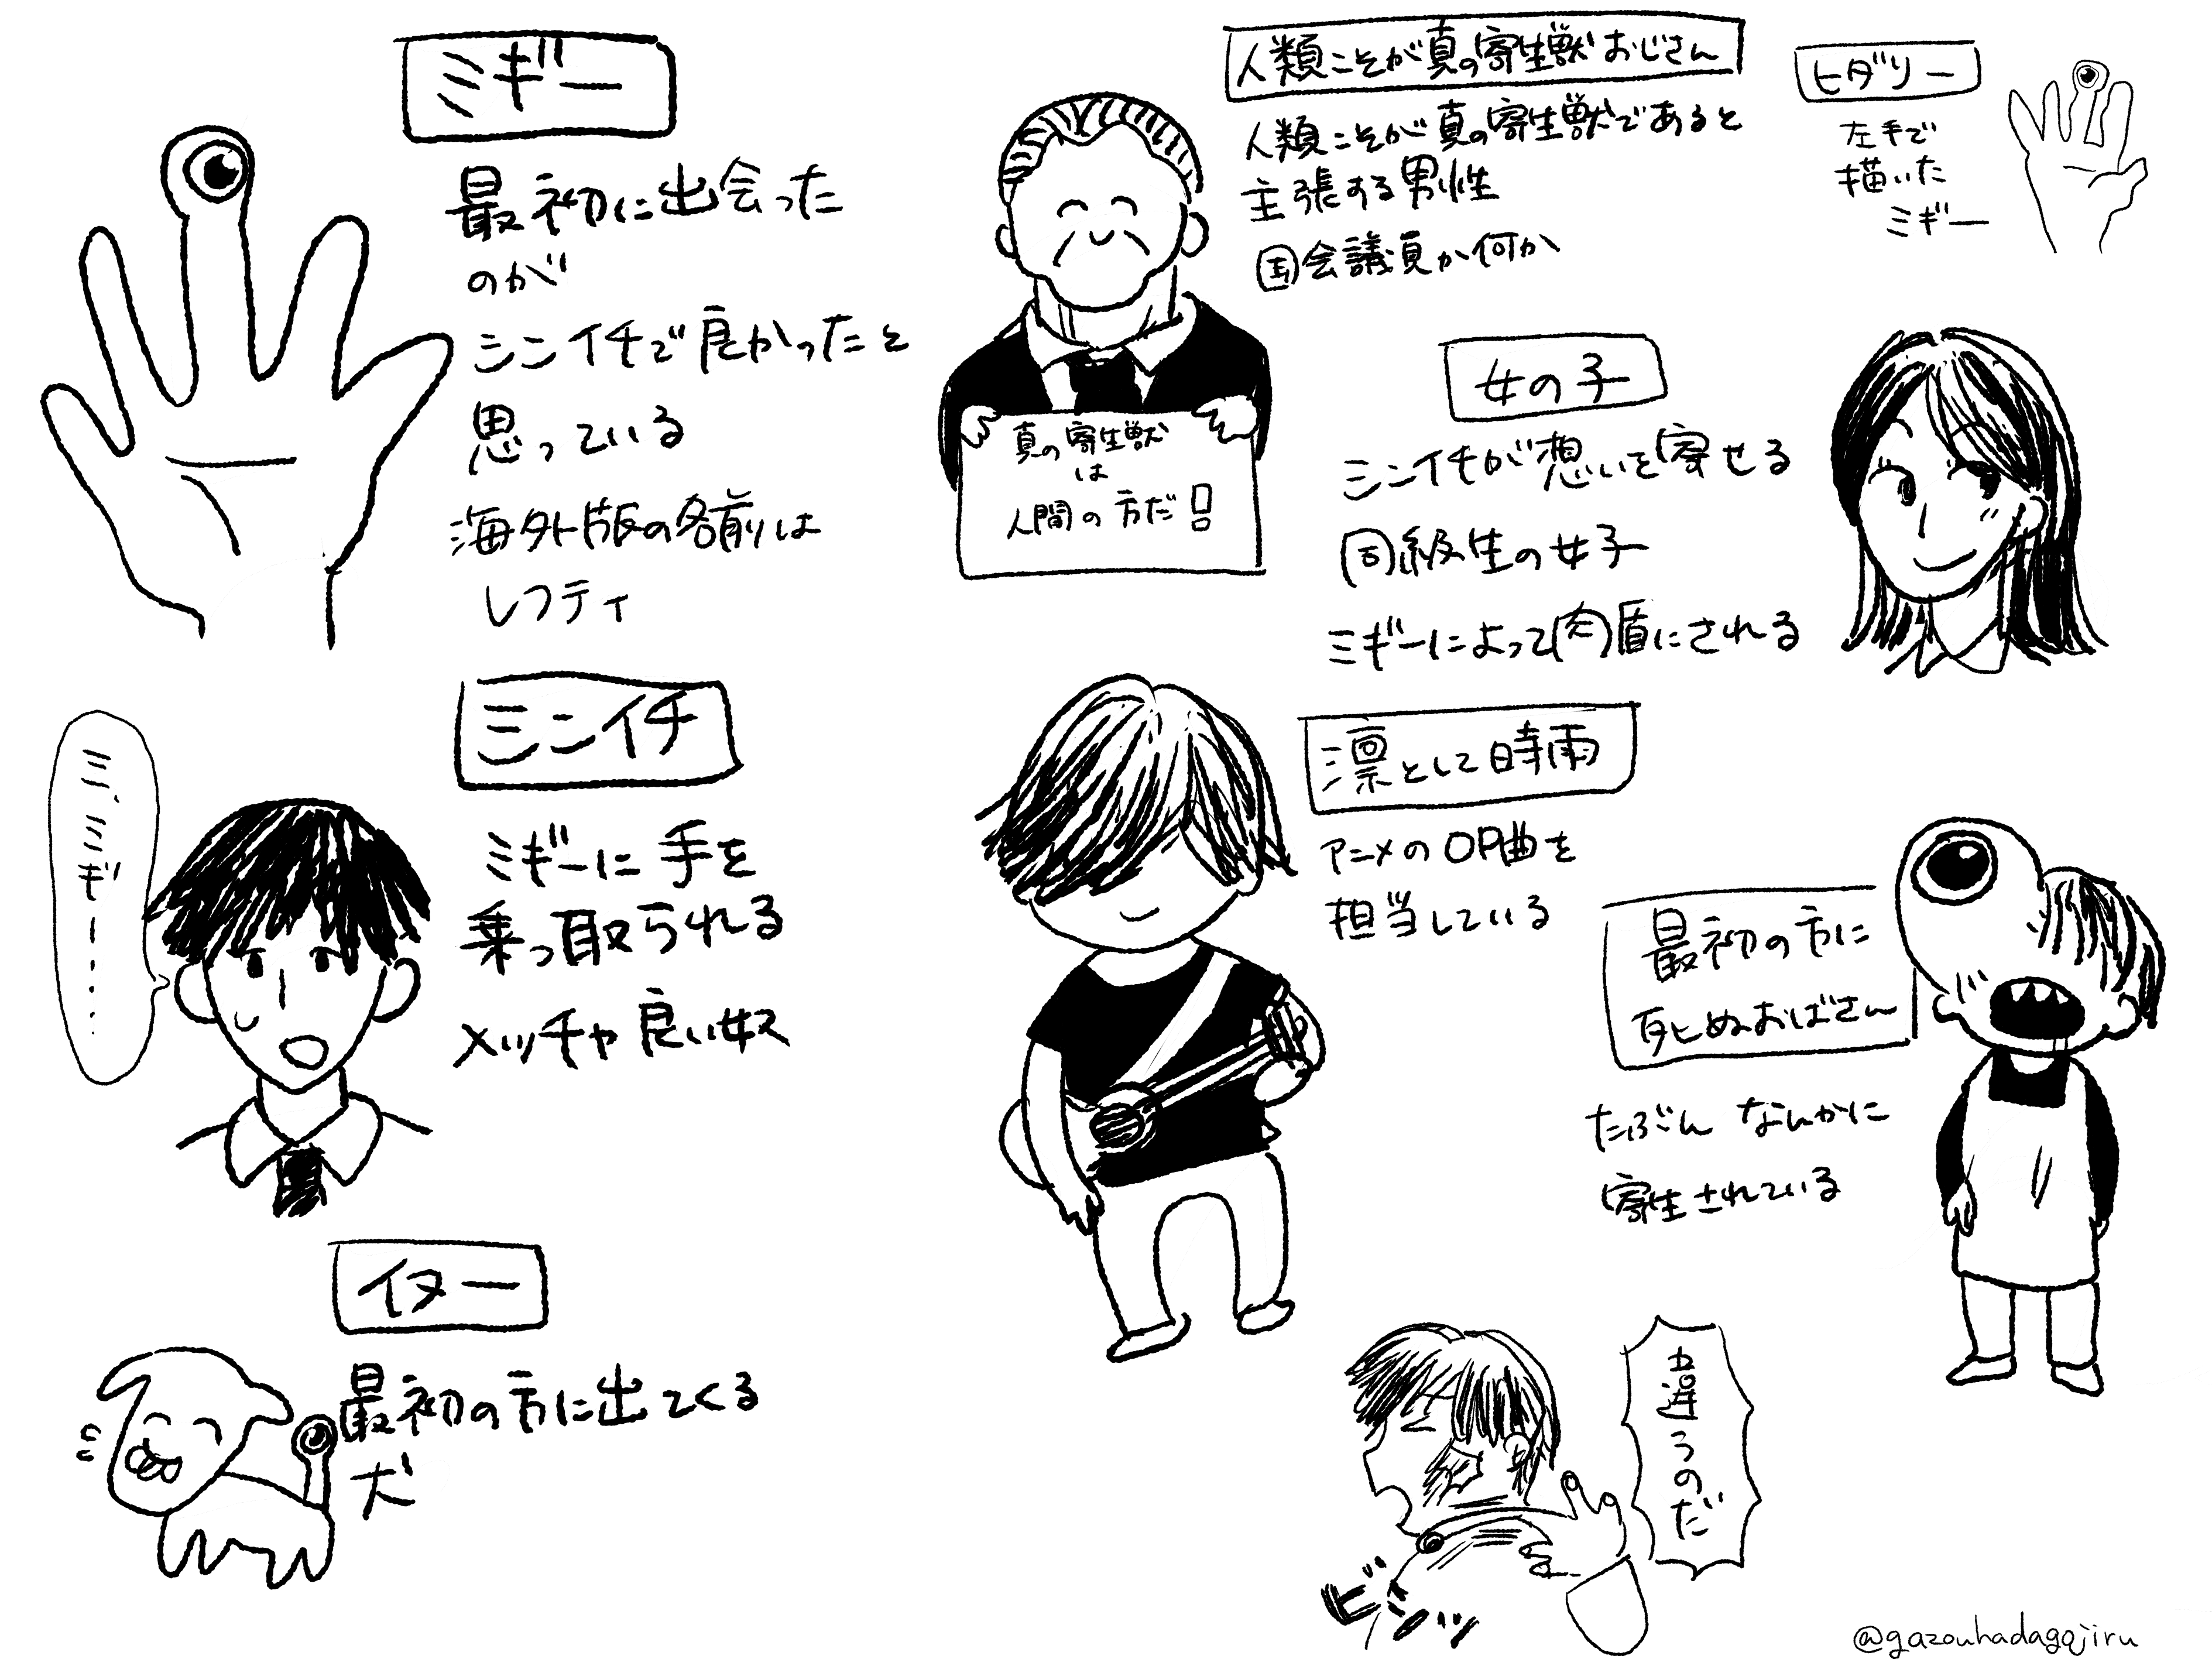 ミギー
最初に出会った
のが
シンイチで良かったと
思っている
海外版の名前は
レフティ
シンイチ
ミ、ミギー……
ミギーに手を
乗っ取られる
メッチャ良い奴
イヌー
最初の方に出てくる
犬
人類こそが真の寄生獣おじさん
人類こそが真の寄生獣であると
主張する男性
国会議員か何か
真の寄生獣
は
人間の方だ!!
ヒダリー
左手で
描いた
ミギー
女の子
シンイチが想いを寄せる
同級生の女子
ミギーによって肉盾にされる
凛として時雨
アニメのOP曲を
担当している
最初の方に
死ぬおばさん
たぶん なんかに
寄生されている
違うのだ
@gazouhadagojiru